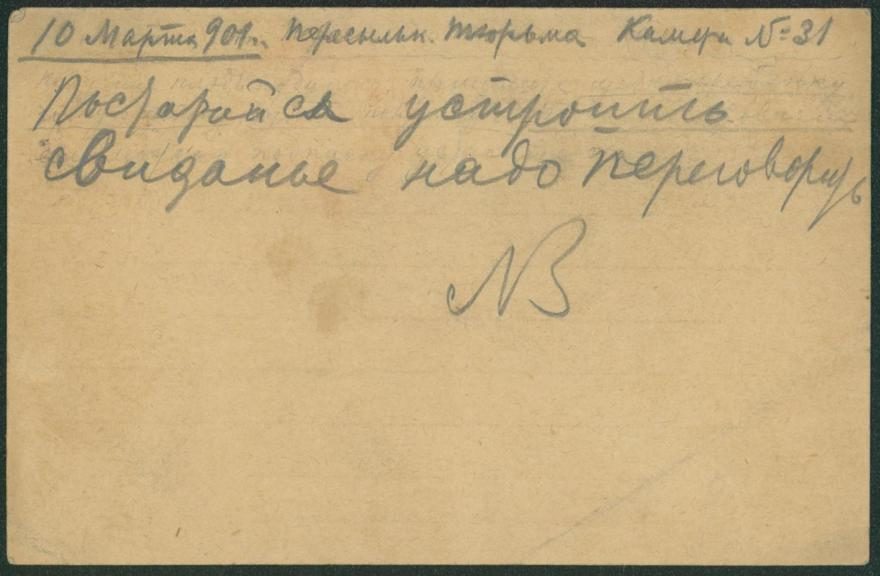 10 Марта 901 г. Пересыльн. тюрьма Камера № 31
Постарайся устроить
свиданье надо переговорить
NB